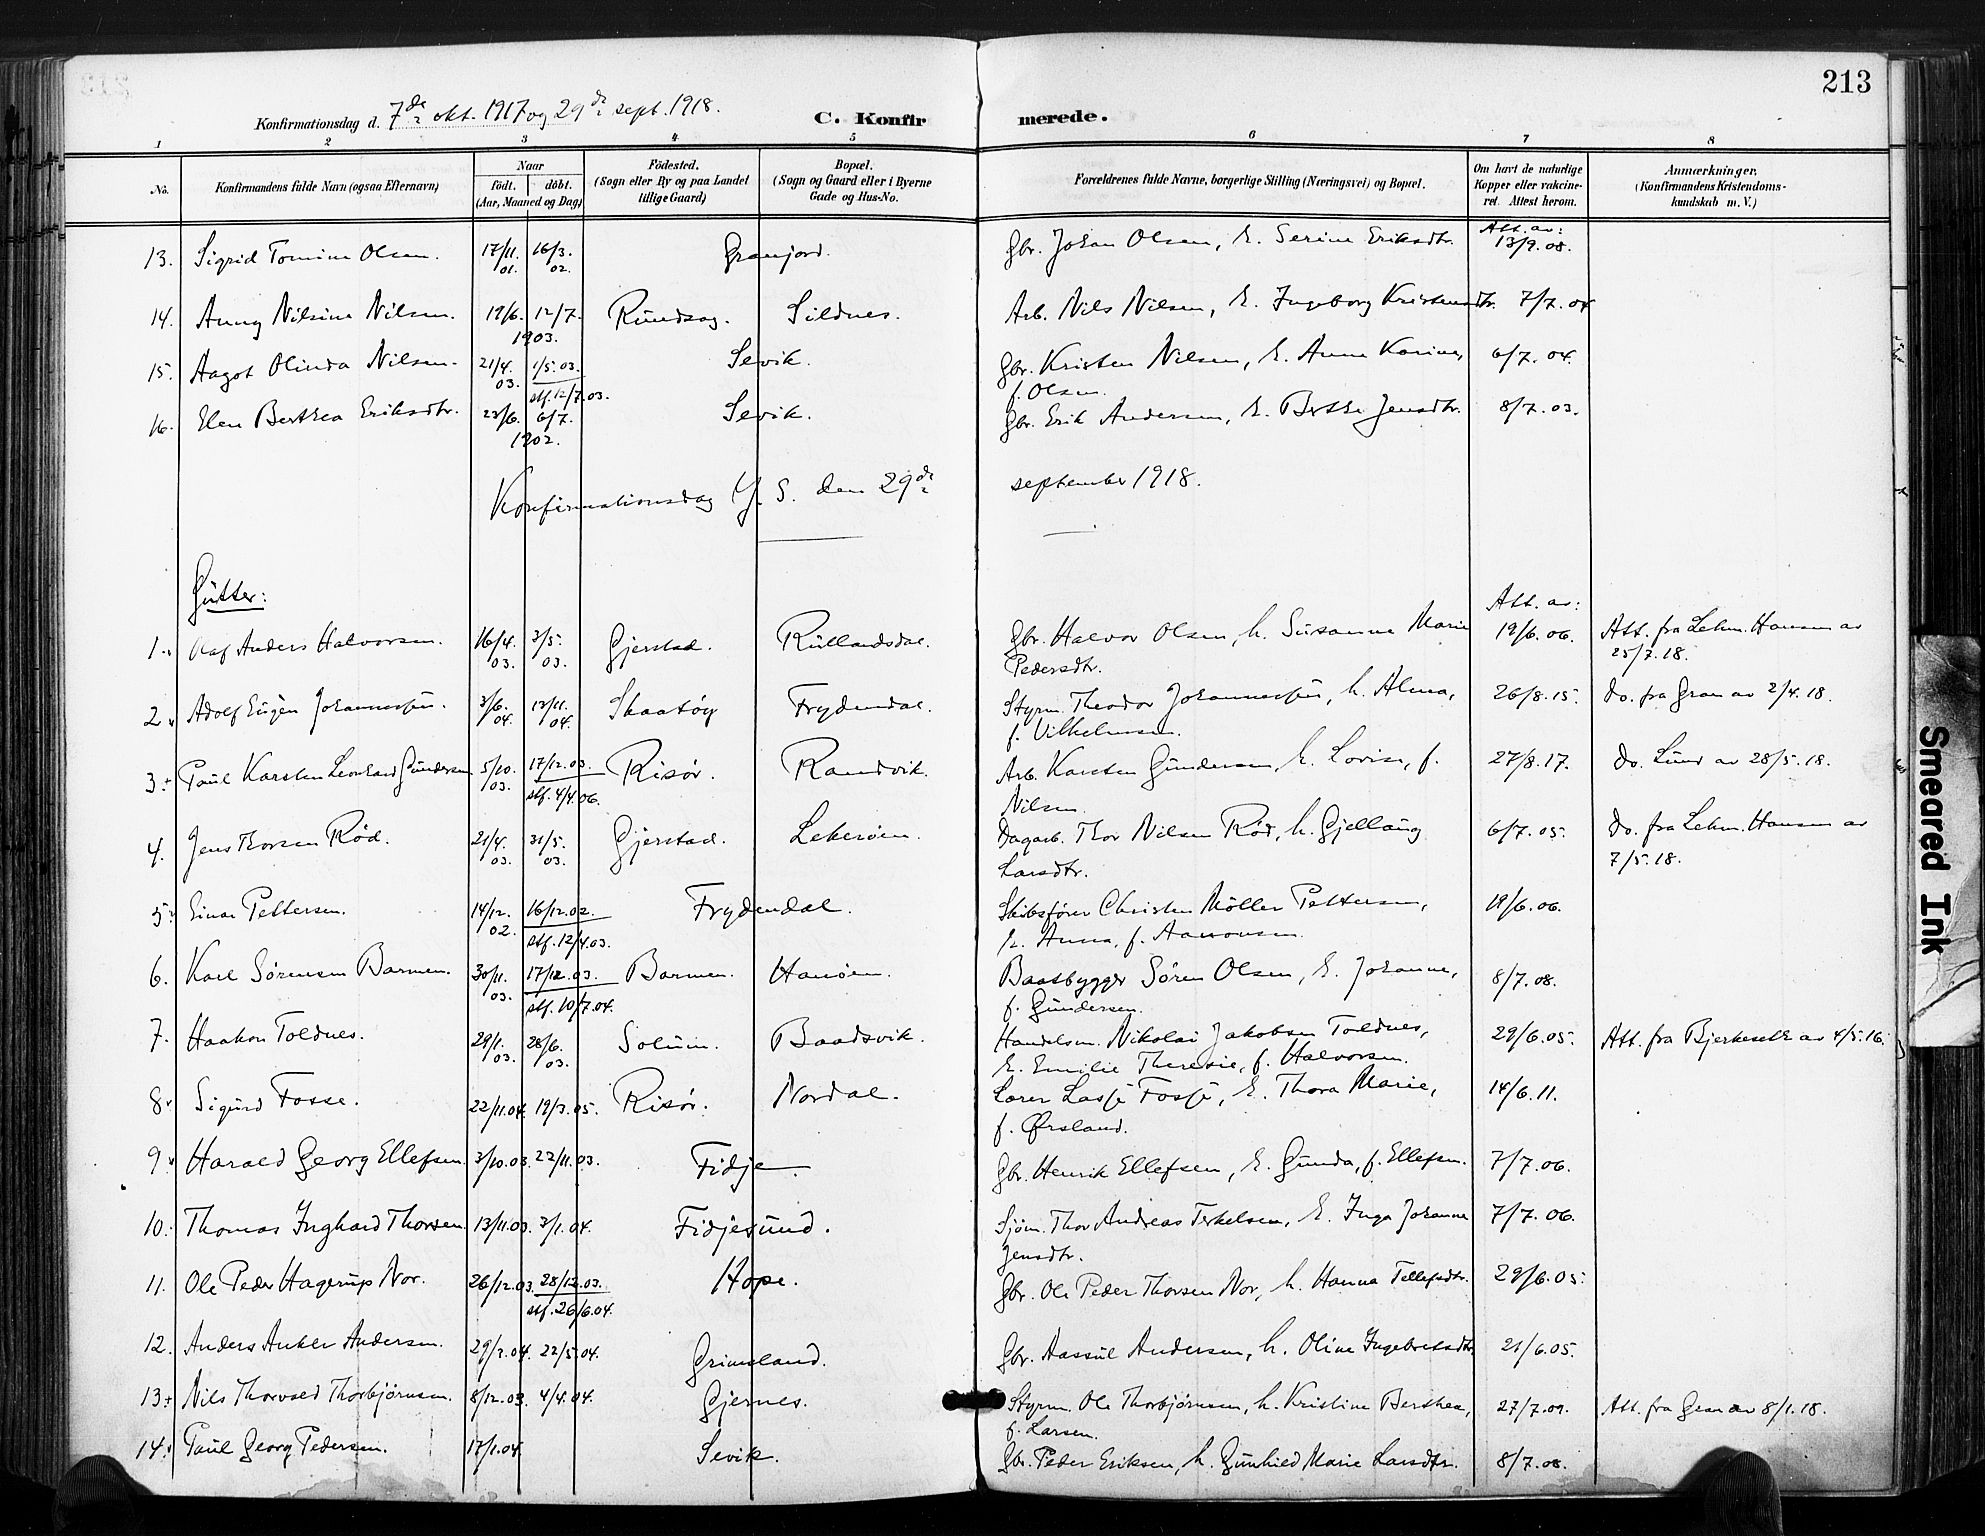 213
Konfirmationsdag d. 7de okt. 1917 og 29de sept. 1918.
C. Konfirmerede.
1 2 3 4 5 6 7 8
No. Konfirmandens fulde Navn (ogsaa Efternavn) Naar födt. döbt. (Aar, Maaned og Dag) Födested. (Sogn eller By og paa Landet tillige Gaard) Bopæl. (Sogn og Gaard eller i Byerne Gade og Hus-No. Forældrenes fulde Navne, borgerlige Stilling (Næringsvei) og Bopæl. Om havt de naturlige Kopper eller vakcineret. Attest herom. Anmærkninger. (Konfirmandens Kristendomskundskab m. V.)
Att. av:
13. Sigrid Tomine Olsen. 17/11. 01. 16/3. 02. Granjord. Gbr. Johan Olsen, h. Serine Eriksdtr. 13/9.08.
14. Anny Nilsine Nilsen. 19/6. 12/7. 1903. Rundsag. Sildnes. Arb. Nils Nilsen, h. Ingeborg Kristensdtr. 7/7.04
15. Aagot Olinda Nilsen. 21/4. 03. 1/5.03. stf. 12/7.03. Sevik. Gbr. Kristen Nilsen, h. Anne Karine, 6/7.04.
f. Olsen.
16. Elen Berthea Eriksdtr. 23/6. 6/7. 1902. Sevik. Gbr. Erik Andersen, h. Berthe Jensdtr. 8/7.03.
Konfirmationsdag G. S. den 29de september 1918.
Gutter:
Att. av:
1. Olaf Anders Halvorsen. 16/4. 03. 3/5. 03. Gjerstad. Rullandsdal. Gbr. Halvor Olsen, h. Susanne Marie 19/6.06. Att. fra Lehm. Hansen av
Pedersdtr. 25/7.18.
2. Adolf Eugen Johannessen. 3/6. 04. 13/11. 04. Skaatøy Frydendal. Styrm. Theodor Johannessen, h. Alma, 26/8.15. Do. fra Gran av 2/4.18.
f. Vilhelmsen.
3. Paul Karsten Leonhard Gundersen 5/10. 03. 17/12.03. stf. 4/4.06. Risør. Randvik. Arb. Karsten Gundersen, h. Lovise, f. 27/8.17. Do. Lund av 28/5.18.
Nilsen
4. Jens Thorsen Rød. 21/4. 03. 31/5. 03. Gjerstad. Lekerøen. Dagarb. Thor Nilsen Rød, h. Gjellaug 6/7.05. Do. fra Lehm. Hansen av
Larsdtr. 7/5.18.
5. Einar Pettersen. 14/12. 02. 16/12.02. stf. 12/4.03. Frydendal. Skibsfører Christen Möller Pettersen, 19/6.06.
h. Anna, f. Aanonsen.
6. Karl Sørensen Barmen. 30/11. 03. 17/12.03. stf. 10/7.04. Barmen. Hanøen. Baatbygger Sören Olsen, h. Johanne, 8/7.08.
f. Gundersen.
7. Haakon Toldnes. 29/1. 03. 28/6. 03. Solum. Baadsvik. Handelsm. Nikolai Jakobsen Toldnes, 29/6.05. Att. fra Bjerkeseth av 4/5.16.
h. Emilie Theresie, f. Halvorsen.
8. Sigurd Fosse. 22/11.04. 19/3.05. Risør. Nordal. Lærer Lasse Fosse, h. Thora Marie, 14/6.11.
f. Ørsland.
9. Harald Georg Ellefsen. 3/10.03. 22/11.03. Fidje. Gbr. Henrik Ellefsen, h. Gunda, f. Ellefsen. 7/7.06.
10. Thomas Inghard Thorsen. 13/11.03. 3/1.04. Fidjesund. Sjøm. Thor Andreas Terkelsen, h. Inga Johanne 7/7.06.
Jensdtr.
11. Ole Peder Hagerup Nor. 26/12.03. 28/12.03. stf. 26/6.04. Hope. Gbr. Ole Peder Thorsen Nor, h. Hanna Tellefsdtr. 29/6.05.
12. Anders Anker Andersen. 29/2.04. 22/5.04. Grimsland. Gbr. Aassul Andersen, h. Oline Ingebretsdtr. 21/6.05.
13. Nils Thorvald Thorbjørnsen. 8/12.03. 4/4.04. Gjernes. Styrm. Ole Thorbjørnsen, h. Kristine Berthea, 27/7.09. Att. fra Gran av 8/1.18.
f. Larsen.
14. Paul Georg Pedersen. 17/1.04 Sevik. Gbr. Peder Eriksen, h. Gunhild Marie Larsdtr. 8/7.08.
Smeared Ink